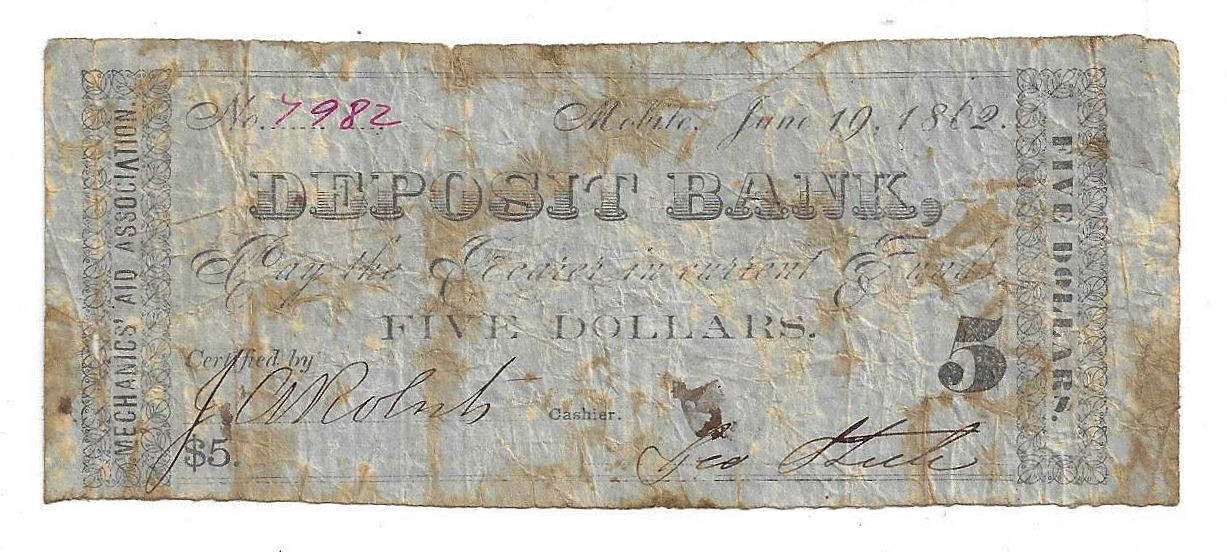 MECHANICS' AID ASSOCIATION.
No. 7982
Mobile, June 19, 1862.
DEPOSIT BANK,
Pay the Bearer in current Funds
FIVE DOLLARS.
Certified by
Cashier.
$5.
5
Geo
FIVE DOLLARS.